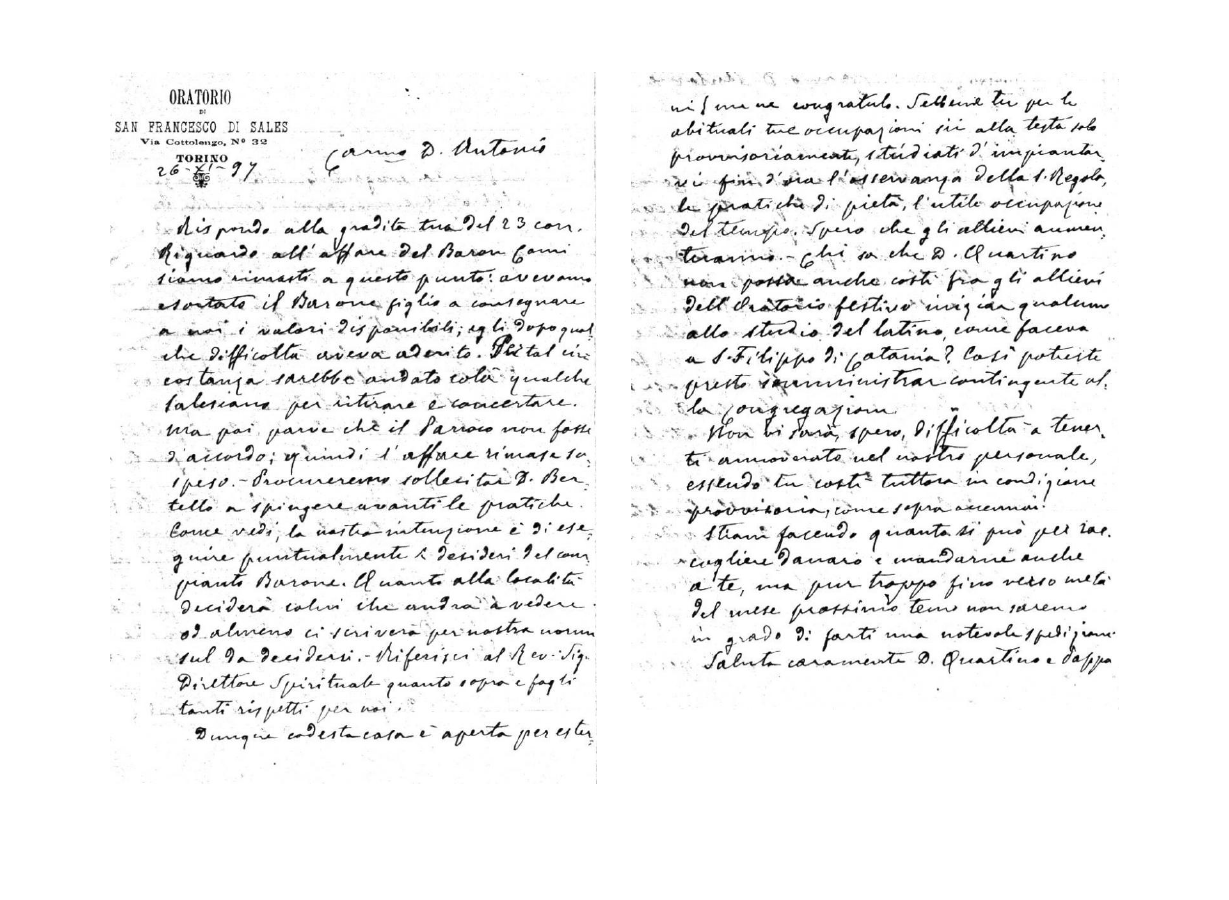 ORATORIO
DI
SAN FRANCESCO DI SALES
Via Cottolengo, Nº 32
TORINO
26-XI-97
Carmo D. Antonio
Rispondo alla gradita tua del 23 corr.
Riguardo all'affare del Baron Comi
siamo rimasti a questo punto: avevamo
esortato il Barone figlio a consegnare
a noi i valori disponibili; egli dopo qual
che difficoltà aveva aderito. Per tal cir
costanza sarebbe andato colà qualche
Salesiano per ritirare e concertare.
Ma poi parve che il Parroco non fosse
d'accordo; quindi l'affare rimase so,
speso. - Procureremo sollecitar D. Ber,
tello a spingere avanti le pratiche.
Come vedi, la nostra intenzione è di ese,
guire puntualmente i desideri del com
pianto Barone. Quanto alla località
deciderà colui che andrà a vedere
od almeno ci scriverà per nostra norma
sul da decidersi. - Riferisci al Rev. Sig.
Direttore Spirituale quanto sopra e fagli
tanti rispetti per noi.
Dunque codesta casa è aperta per ester,
ni! me ne congratulo. Sebbene tu per le
abituali tue occupazioni sii alla testa solo
provvisoriamente, studiati d'impiantar,
vi fin d'ora l'osservanza della S. Regola,
le pratiche di pietà, l'utile occupazione
del tempo. Spero che gli allievi aumen,
teranno. - Chi sa che D. Quartino
non possa anche costì fra gli allievi
dell'Oratorio festivo iniziar qualcuno
allo studio del latino, come faceva
a S. Filippo di Catania? Così potreste
presto somministrar contingente al,
la Congregazione
Non vi sarà, spero, difficoltà a tener,
ti annoverato nel nostro personale,
essendo tu costì tuttora in condizione
provvisoria, come sopra accennai.
Stiam facendo quanto si può per rac,
cogliere danaro e mandarne anche
a te, ma pur troppo fino verso metà
del mese prossimo temo non saremo
in grado di farti una notevole spedizione
Saluta caramente D. Quartino e dappo